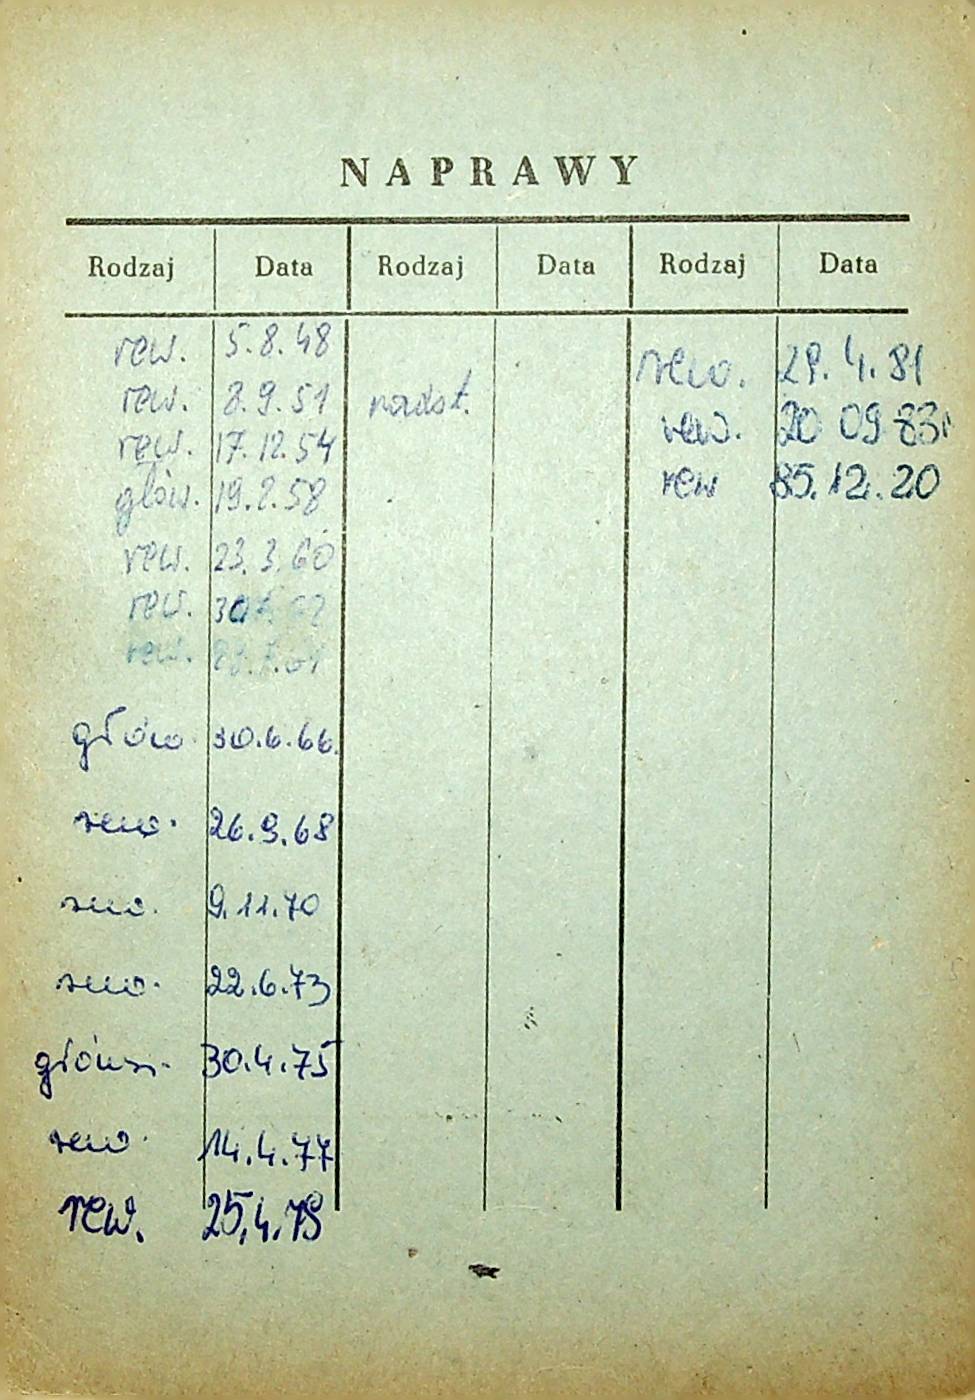 NAPRAWY
Rodzaj Data Rodzaj Data Rodzaj Data
rew. 5.8.48
rew. 8.9.51 nadst.
rew. 17.12.54
głów. 19.2.58
rew. 23.3.60
rew. 30
rew.
głów. 30.6.66.
rew. 26.9.68
rew. 9.11.70
rew. 22.6.73
główn. 30.4.75
rew. 14.4.77
rew. 25.4.79
rew. 29.4.81
rew. 20 09 83r
rew 85.12.20